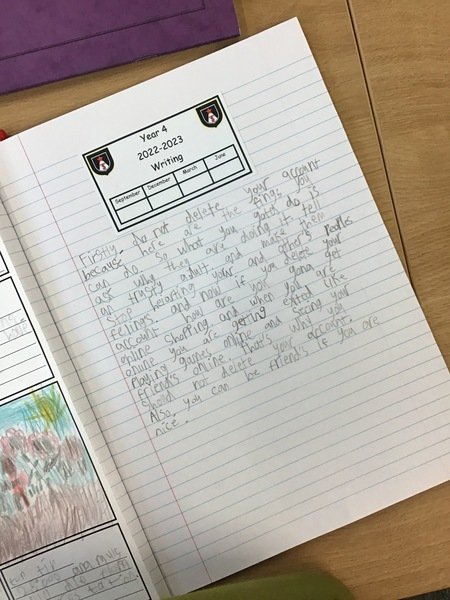 Year 4
2022-2023
Writing
September December March June
Firstly, do not delete your account
because here are the fings you
can do. So what you gotd do is
ask why they are doing it, tell
an trusty adult and make them
stop heiarting your and other's peoples
feelings and now if you delete your
account how are you gona get
online shopping and when you are
online you are getting exited like
Playing games online and seeing your
friend's online. that's why you
should not delete your account.
Also, you can be friend's if you are
nice.
top tip